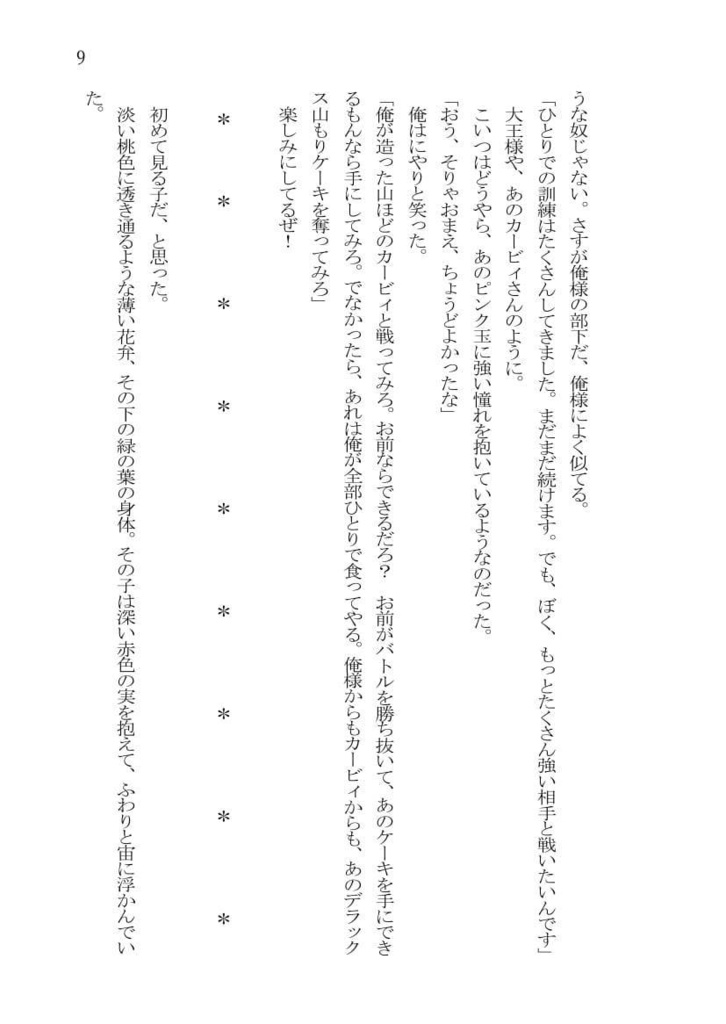 9
うな奴じゃない。さすが俺様の部下だ、俺様によく似てる。
「ひとりでの訓練はたくさんしてきました。まだまだ続けます。でも、ぼく、もっとたくさん強い相手と戦いたいんです」
大王様や、あのカービィさんのように。
こいつはどうやら、あのピンク玉に強い憧れを抱いているようなのだった。
「おう、そりゃおまえ、ちょうどよかったな」
俺はにやりと笑った。
「俺が造った山ほどのカービィと戦ってみろ。お前ならできるだろ？　お前がバトルを勝ち抜いて、あのケーキを手にでき
るもんなら手にしてみろ。でなかったら、あれは俺が全部ひとりで食ってやる。俺様からもカービィからも、あのデラック
ス山もりケーキを奪ってみろ」
楽しみにしてるぜ！
＊　＊　＊　＊　＊　＊　＊　＊　＊
初めて見る子だ、と思った。
淡い桃色に透き通るような薄い花弁、その下の緑の葉の身体。その子は深い赤色の実を抱えて、ふわりと宙に浮かんでい
た。